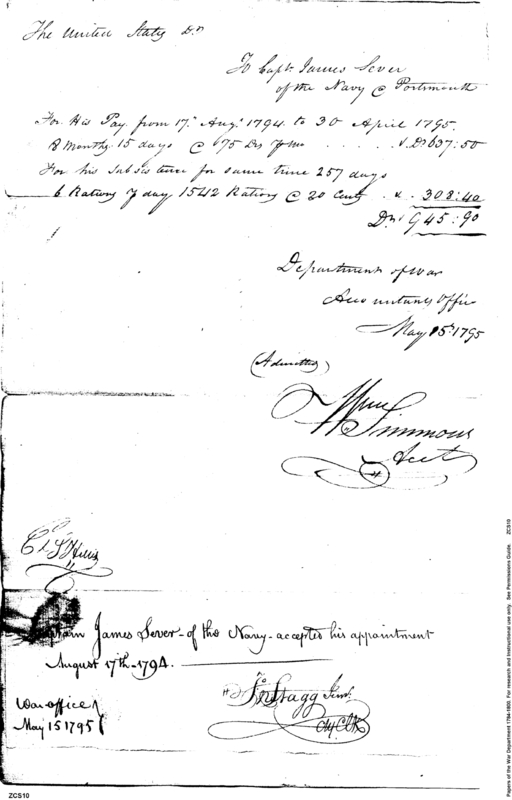 The United States Dr
To Capt James Sever
of the Navy @ Portsmouth
For His Pay from 17th Augt 1794 to 30 April 1795.
8 Months 15 days @ 75 Drs P Mo . . . . . Drs 637:50
For his Subsistence for same time 257 days
6 Rations P day 1542 Rations @ 20 Cents . . 308:40
Drs 945:90
Department of War
Accountants Office
May 15th 1795
(Admitted)
Wm Simmons
Acct
Captain James Sever - of the Navy - accepted his appointment
August 17th - 1794.
War office
May 15 1795
Jno Stagg Junr
Chf Clk
ZCS10
Papers of the War Department 1784-1800. For research and instructional use only. See Permissions Guide. ZCS10